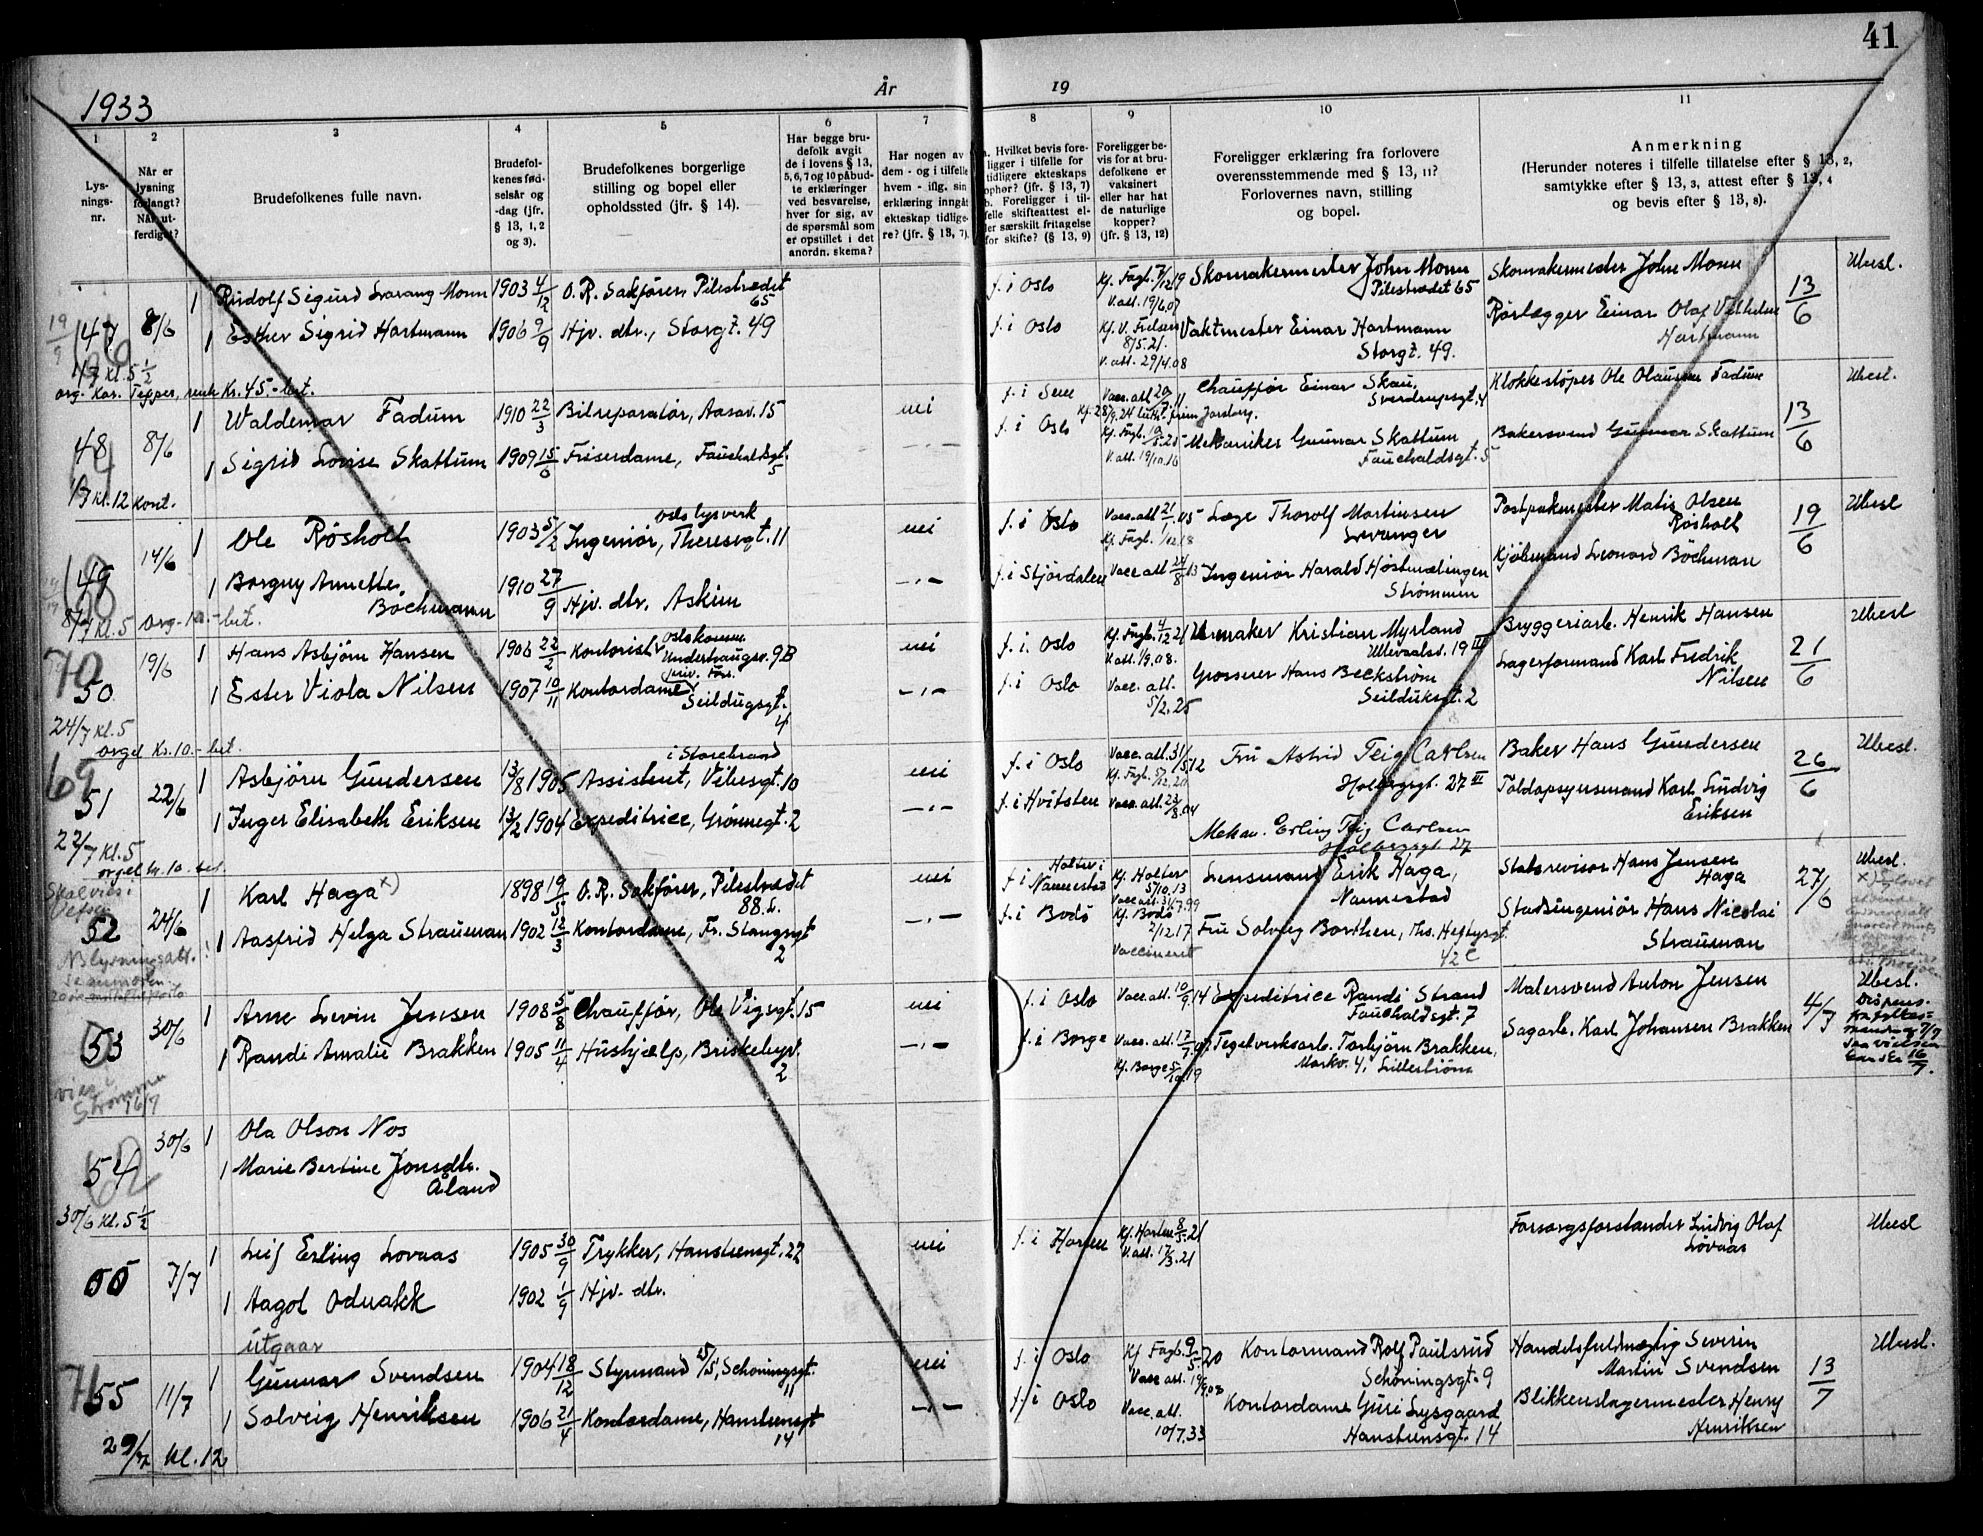 41
1933
År
19
1
2
3
4
5
6
7
8
9
10
11
Lys-
nings-
nr.
Når er
lysning
forlangt?
Når ut-
ferdiget?
Brudefolkenes fulle navn.
Brudefol-
kenes fød-
selsår og
-dag (jfr.
§ 13, 1, 2
og 3).
Brudefolkenes borgerlige
stilling og bopel eller
opholdssted (jfr. § 14).
Har begge bru-
defolk avgit
de i lovens § 13,
5, 6, 7 og 10 påbud-
te erklæringer
ved besvarelse,
hver for sig, av
de spørsmål som
er opstillet i det
anordn. skema?
Har nogen av
dem - og i tilfelle
hvem - iflg. sin
erklæring inngåt
ekteskap tidlige-
re? (jfr. § 13, 7).
a. Hvilket bevis fore-
ligger i tilfelle for
tidligere ekteskaps
ophør? (jfr. § 13, 7)
b. Foreligger i til-
felle skifteattest el-
ler særskilt fritagelse
for skifte? (§ 13, 9)
Foreligger be-
vis for at bru-
defolkene er
vaksinert
eller har hat
de naturlige
kopper?
(jfr. § 13, 12)
Foreligger erklæring fra forlovere
overensstemmende med § 13, 11?
Forlovernes navn, stilling
og bopel.
Anmerkning
(Herunder noteres i tilfelle tillatelse efter § 13, 2,
samtykke efter § 13, 3, attest efter § 13, 4
og bevis efter § 13, 8).
47 8/6 1 Rudolf Sigurd Svarang Monn 1903 4/12 O. R. Sakfører, Pilestrædet 65 f. i Oslo Kf. Fagb. 7/12 19 V. att. 19/6 07 Skomakermester John Monn Pilestrædet 65 Skomakermester John Monn 13/6 Ubesl.
1 Esther Sigrid Hartmann 1906 9/9 Hjv. dtr., Storgt. 49 f. i Oslo Kf. V. Frelsers 8/5.21. V. att. 29/4.08 Vaktmester Einar Hartmann Storgt. 49. Rørlægger Einar Olaf Vilhelm Hartmann
Kl. 5 1/2
org. Kor. Tepper, Kr. 45.- bet.
48 8/6 1 Waldemar Fadum 1910 22/3 Bilreparatør, Aasav. 15 nei f. i Sem Vacc. att. Kf. 28/9.24 Chauffør Einar Skau, Sverdrupsgt. 4 Klokkestøper Ole Olaussen Fadum 13/6 Ubesl.
1 Sigrid Lovise Skattum 1909 15/6 Friserdame, Fauchaldsgt. 5 -"- f. i Oslo Kf. Fagb. V. att. 19/10.16 Mekaniker Gunnar Skattum Fauchaldsgt. 5 Bakersvend Gunnar Skattum
Kl. 12 kont.
49 14/6 1 Ole Røsholt 1903 5/2 Oslo lysverk Ingeniør, Theresegt. 11 nei f. i Oslo Vacc. att. 21/1.05 Kf. Fagb. Læge Thorolf Martinsen Levanger Postpakmester Matis Olsen Røsholt 19/6 Ubesl
1 Borgny Annette Bøchmann 1910 27/9 Hjv. dtr. Askim -"- f. i Stjørdalen Vacc. att. 24/8 13 Ingeniør Harald Høstmælingen Strømmen Kjøbmand Leonard Bøchman
8/7 Kl. 5 org. 10.- bet.
70
50 19/6 1 Hans Asbjørn Hansen 1906 22/2 Oslo komm. Kontorist Underhaugsv. 9B nei f. i. Oslo Kf. Fagb. 4/12 21 V. att. 1/9.08. Urmaker Kristian Myrland Ullevaalsv. 19 III Bryggeriarb. Henrik Hansen 21/6 Ubesl
1 Ester Viola Nilsen 1907 10/11 Kontordame Seildugsgt. 4 -"- f. i Oslo Vacc. att. 5/2.25 Grosserer Hans Beckstrøm Seilduksgt. 2 Lagerformand Karl Fredrik Nilsen
24/7 Kl. 5
orgel Kr. 10.- bet.
69
51 22/6 1 Asbjørn Gundersen 13/8 1905 i Storebrand Assistent, Vibesgt. 10 nei f. i Oslo Vacc. att. 31/5 12 Kf. Fagb. Fru Astrid Teig Carlsen Holbergsgt. 27 III Baker Hans Gundersen 26/6 Ubesl.
1 Inger Elisabeth Eriksen 13/2 1904 Expeditrice, Grønnegt. 2 -"- f. i Hvitsten Vacc. att. 22/8.04 Mekan. Erling Teig Carlsen Holbergsgt 27 Toldopsynsmand Karl Ludvig Eriksen
22/7 Kl. 5
orgel kr. 10.- bet.
Skal vies i Vefsn
52 24/6 1 Karl Haga x) 1898 19/5 O. R. Sakfører, Pilestrædet 88. nei f. i Holter i Nannestad Kf. Holter 5/10.13 Vacc. att. Lensmand Erik Haga, Nannestad Statsrevisor Hans Jensen Haga 27/6 Ubesl.
1 Aasfrid Helga Strauman 1902 12/3 Kontordame, Fr. Stangsgt 2 -"- f. i Bodø Kf. Bodø 2/12.17 Vaccineret Fru Solveig Borthen, Ths. Heftysgt. 42 C Stadsingeniør Hans Nicolai Strauman
53 30/6 1 Arne Levin Jensen 1908 5/8 Chauffør, Ole Vigsgt. 15 nei f. i Oslo Vacc. att. 10/9 14 Expeditrice Randi Strand Fauchaldsgt. 7 Malersvend Anton Jensen 4/7 Ubesl.
1 Randi Amalie Brakken 1905 11/4 Hushjælp, Briskebyv. 2 -"- f. i Borge Vacc. att. Kf. Borge Tegelverksarb. Torbjørn Brakken, Markv. 4, Lillestrøm Sagarb. Karl Johansen Brakken
Strømmen
16/7
54 30/6 1 Ola Olson Nos
1 Marie Bertine Jonsdtr. Åland
30/6 Kl. 5 1/2
55 7/7 1 Leif Erling Lovaas 1905 30/9 Trykker, Hanstensgt. 27 nei f. i Horten Kf. Horten 8/5.21 V. att. 17/3.21 Forsorgsforstander Ludvig Olaf Lovaas Ubesl
1 Aagot Odnakk 1902 1/9 Hjv. dtr.
utgaar
71
55 11/7 1 Gunnar Svendsen 1904 18/12 Styrmand, Schøningsgt. 11 nei f. i Oslo Kf Fagb. 9/5 20 Vacc att. Kontormand Rolf Paulsrud Schøningsgt. 9 Handelsfuldmægtig Severin Martin Svendsen 13/7 Ubesl.
1 Solveig Henriksen 1906 21/4 Kontordame, Hanstensgt 14 -"- f. i Oslo Vacc. att. 10/7.33 Kontordame Guri Lysgaard Hanstensgt. 14 Blikkenslagermester Henry Henriksen
29/7 Kl. 12